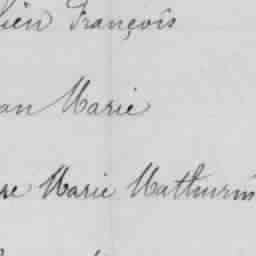 lien François
an Marie
re Marie Mathurin